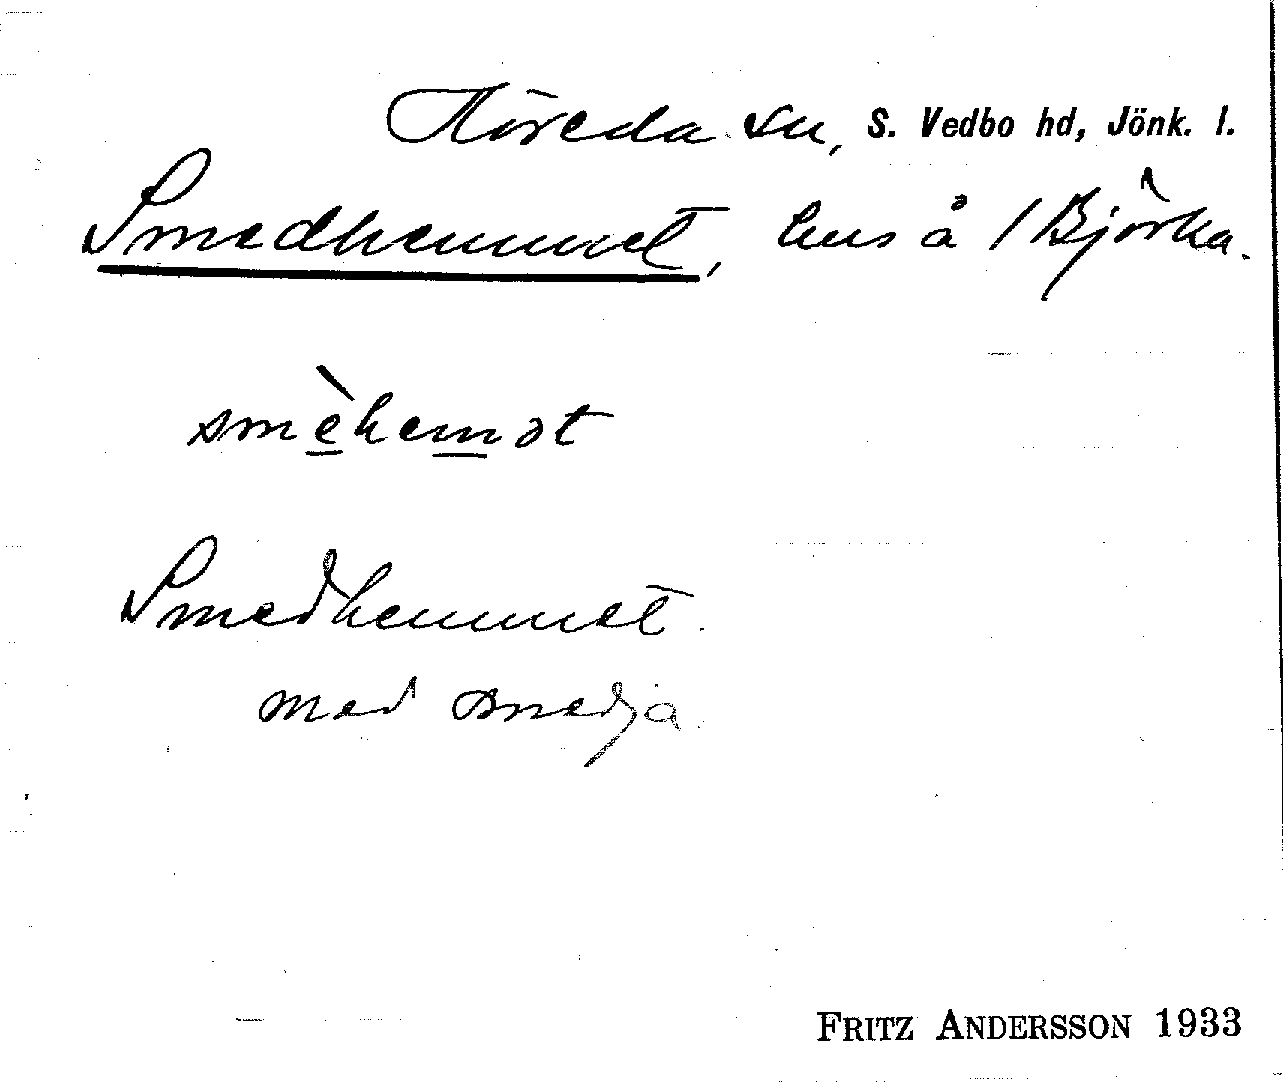 Höreda sn, S. Vedbo hd, Jönk. l.
Smedhemmet, hus å /Björka.
smèhemət
Smedhemmet.
med smedja
FRITZ ANDERSSON 1933